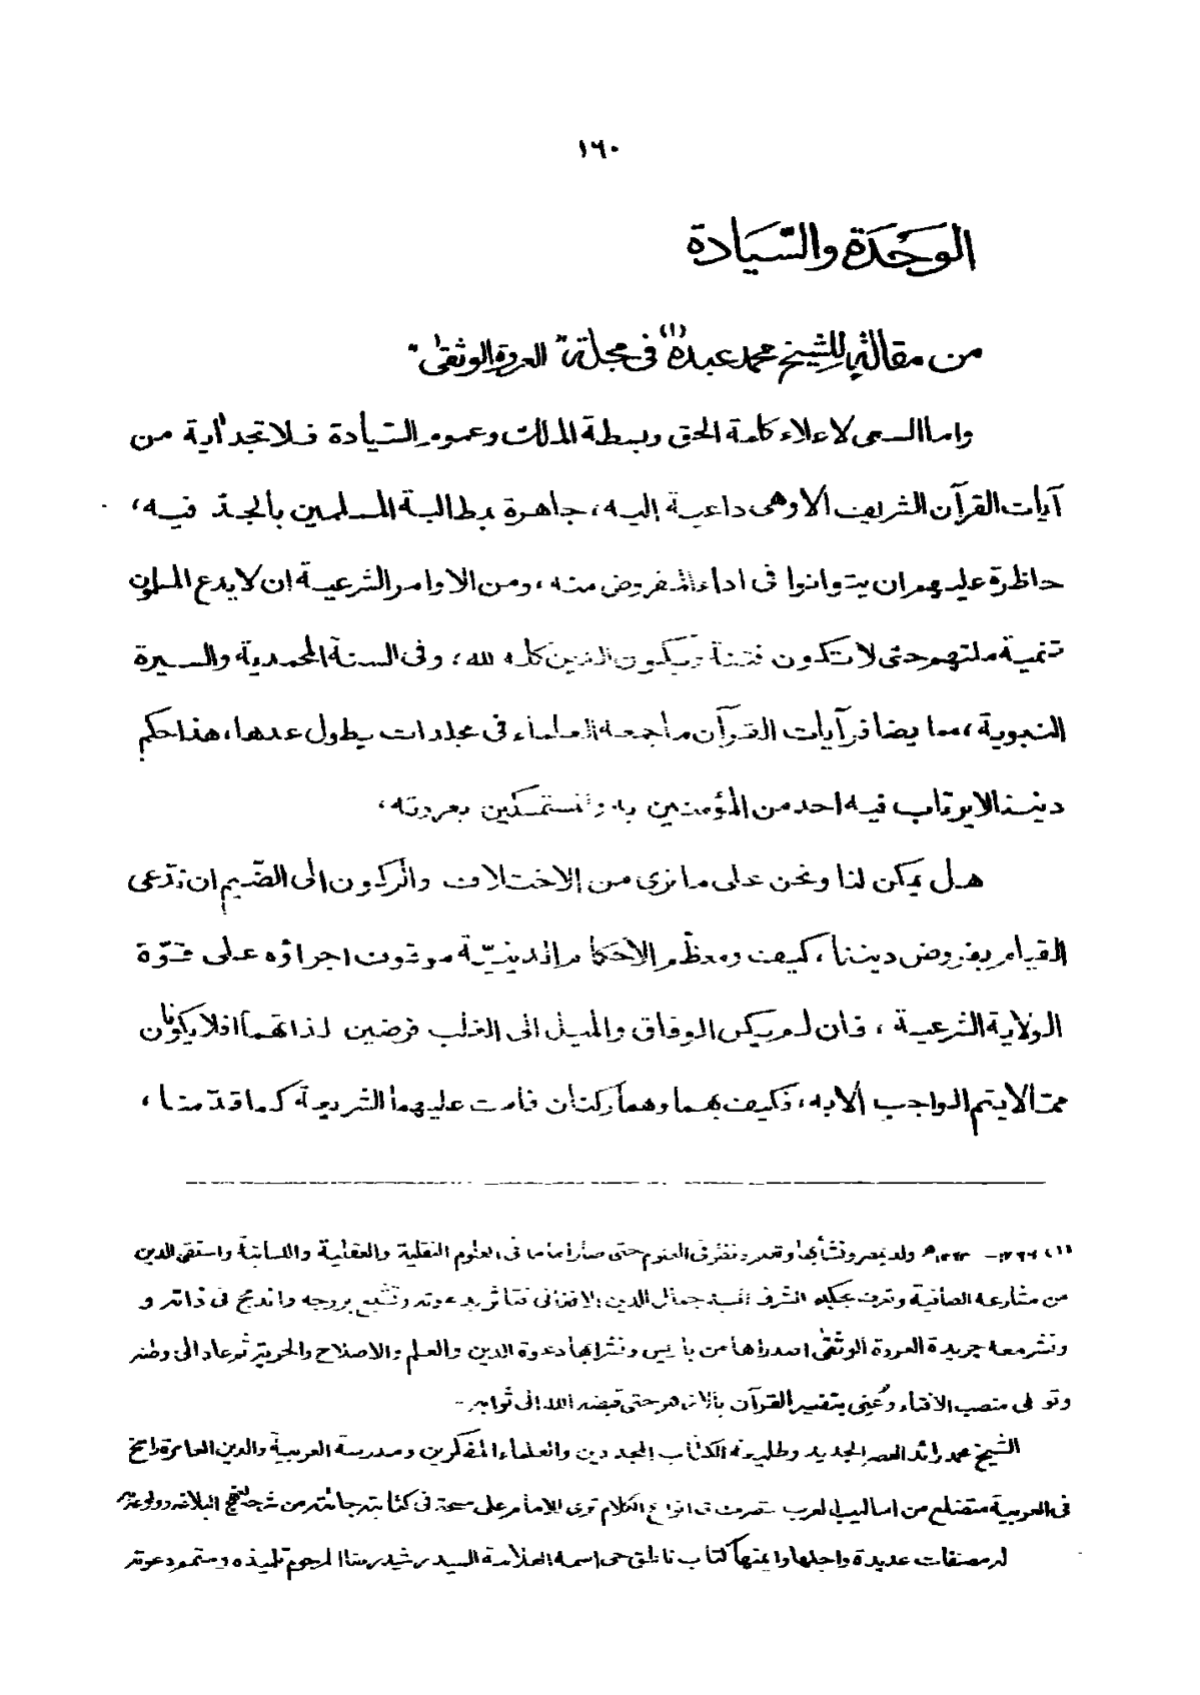 ١٦٠
الوَحْدَة والسّيَادة
من مقالة للشيخ محمد عبده (١) في مجلة "العروة الوثقى"
واما السعى لاعلاء كلمة الحق وبسطة الملك وعموم السّيادة فلا تجد أية من
آيات القرآن الشريف الا وهى داعية إليه، جاهرة بمطالبة المسلمين بالجدّ فيه،
حاظرة عليهم ان يتوانوا فى اداء المفروض منه، ومن الاوامر الشرعية ان لا يدع المسلمون
تنمية ملتهم حتى لا تكون فتنة ويكون الدين كله لله، وفى السنة المحمدية والسيرة
النبوية، مما يضافر آيات القرآن ما جمعه العلماء فى مجلدات يطول عدها، هذا حكم
ديننا لا يرتاب فيه احد من المؤمنين به والمستمسكين بعروته،
هل يمكن لنا ونحن على ما نرى من الاختلاف والركون الى الضّيم ان ندّعى
القيام بفروض ديننا، كيف ومعظم الاحكام الدينيّة موقوف اجراؤه على قوّة
الولاية الشرعية، فان لم يكن الوفاق والميل الى الغلب فرضين لذاتهما افلا يكونان
ممّا لا يتم الواجب الا به، فكيف بهما وهما ركنان قامت عليهما الشريعة كما قدّمنا،
(١) ١٢٦٦ - ١٣٢٣ه ولد بمصر ونشأ بها وقعد وتفنّن فى العلوم حتى صار إماما فى العلوم النقلية والعقلية واللسانية واستقى الدين
من مشارعه الصافية وتعرف بحكيم الشرق السيد جمال الدين الافغانى فتأثر بدعوته وتشبع بروحه واندمج فى ذاته و
ونشر معه جريدة العروة الوثقى اصدراها من باريس ونشرا بها دعوة الدين والعلم والاصلاح والحرية ثم عاد الى وطنه
وتولى منصب الافتاء وعُنى بتفسير القرآن بالازهر حتى قبضه الله الى ثوابه -
الشيخ محمد رائد العصر الجديد وطليعة الكتاب المجددين والعلماء المفكرين ومدرسة العربية والدين العامرة راسخ
فى العربية متضلع من اساليب العرب متصرف فى انواع الكلام ترى للإمام على مسحة فى كتابته جائته من شرحه لنهج البلاغه وولوعه به
له مصنفات عديدة واجلها وايمنها كتاب ناطق حى اسمه العلامة السيد رشيد رضا المرحوم تلميذه ومتمم دعوته